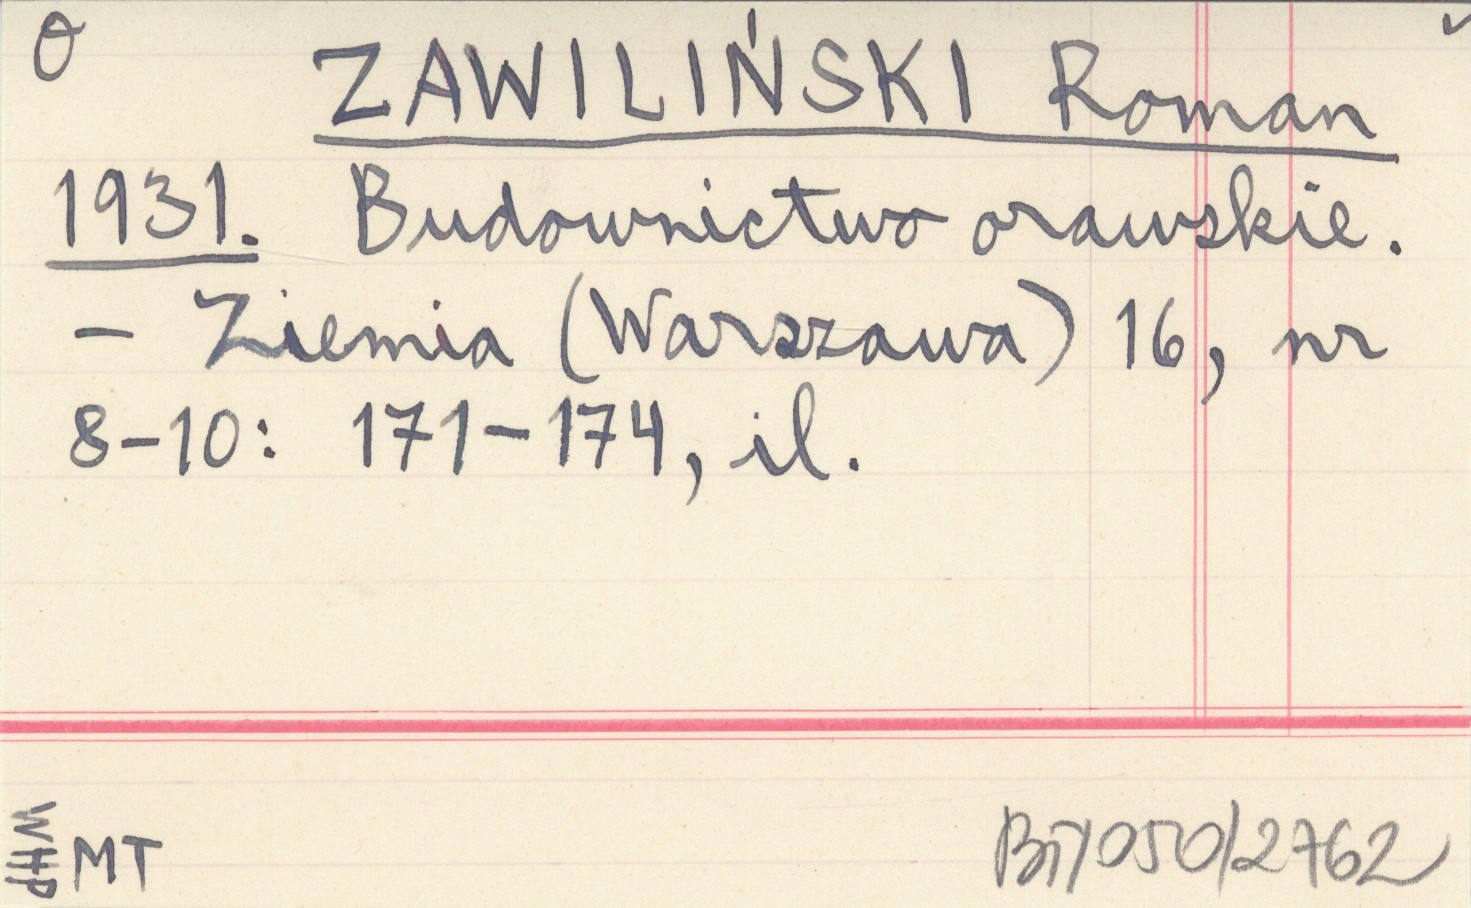 O
ZAWILIŃSKI Roman
1931. Budownictwo orawskie.
– Ziemia (Warszawa) 16, nr
8–10: 171–174, il.
WHP
MT